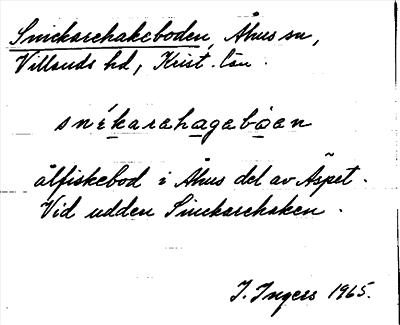 Snickarehakeboden, Åhus sn,
Villands hd, Krist. län.
sníkarahagabǫan
ålfiskebod i Åhus del av Äspet.
Vid udden Snickarehaken.
I. Ingers 1965.